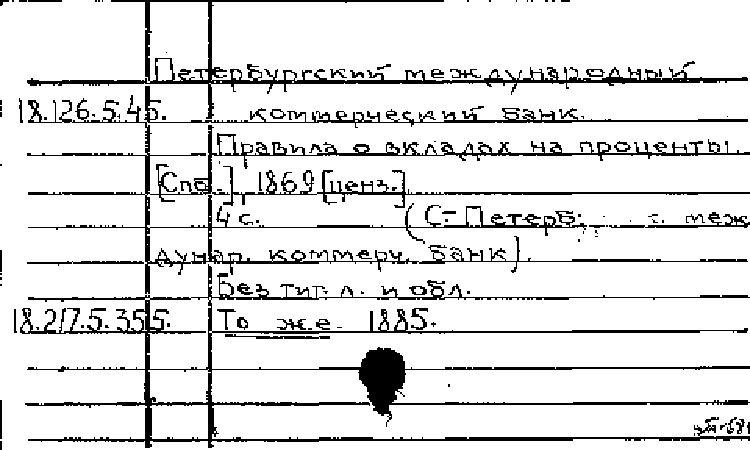 Петербургский международный
18.126.5.45. коммерческий банк.
Правила о вкладах на проценты.
[Спб.], 1869 [ценз.]
4 с. (С-Петерб. меж
дунар. коммерч. банк).
Без тит. л. и обл.
18.217.5.355. То же. 1885.